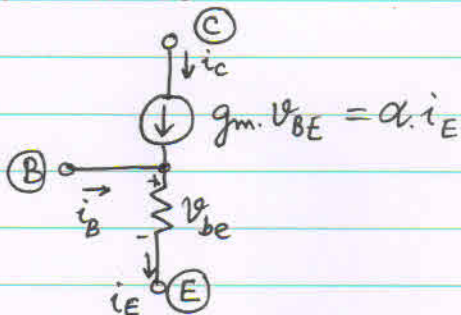 C
i_C
g_m. v_BE = α. i_E
B
i_B
+
v_be
-
i_E
E